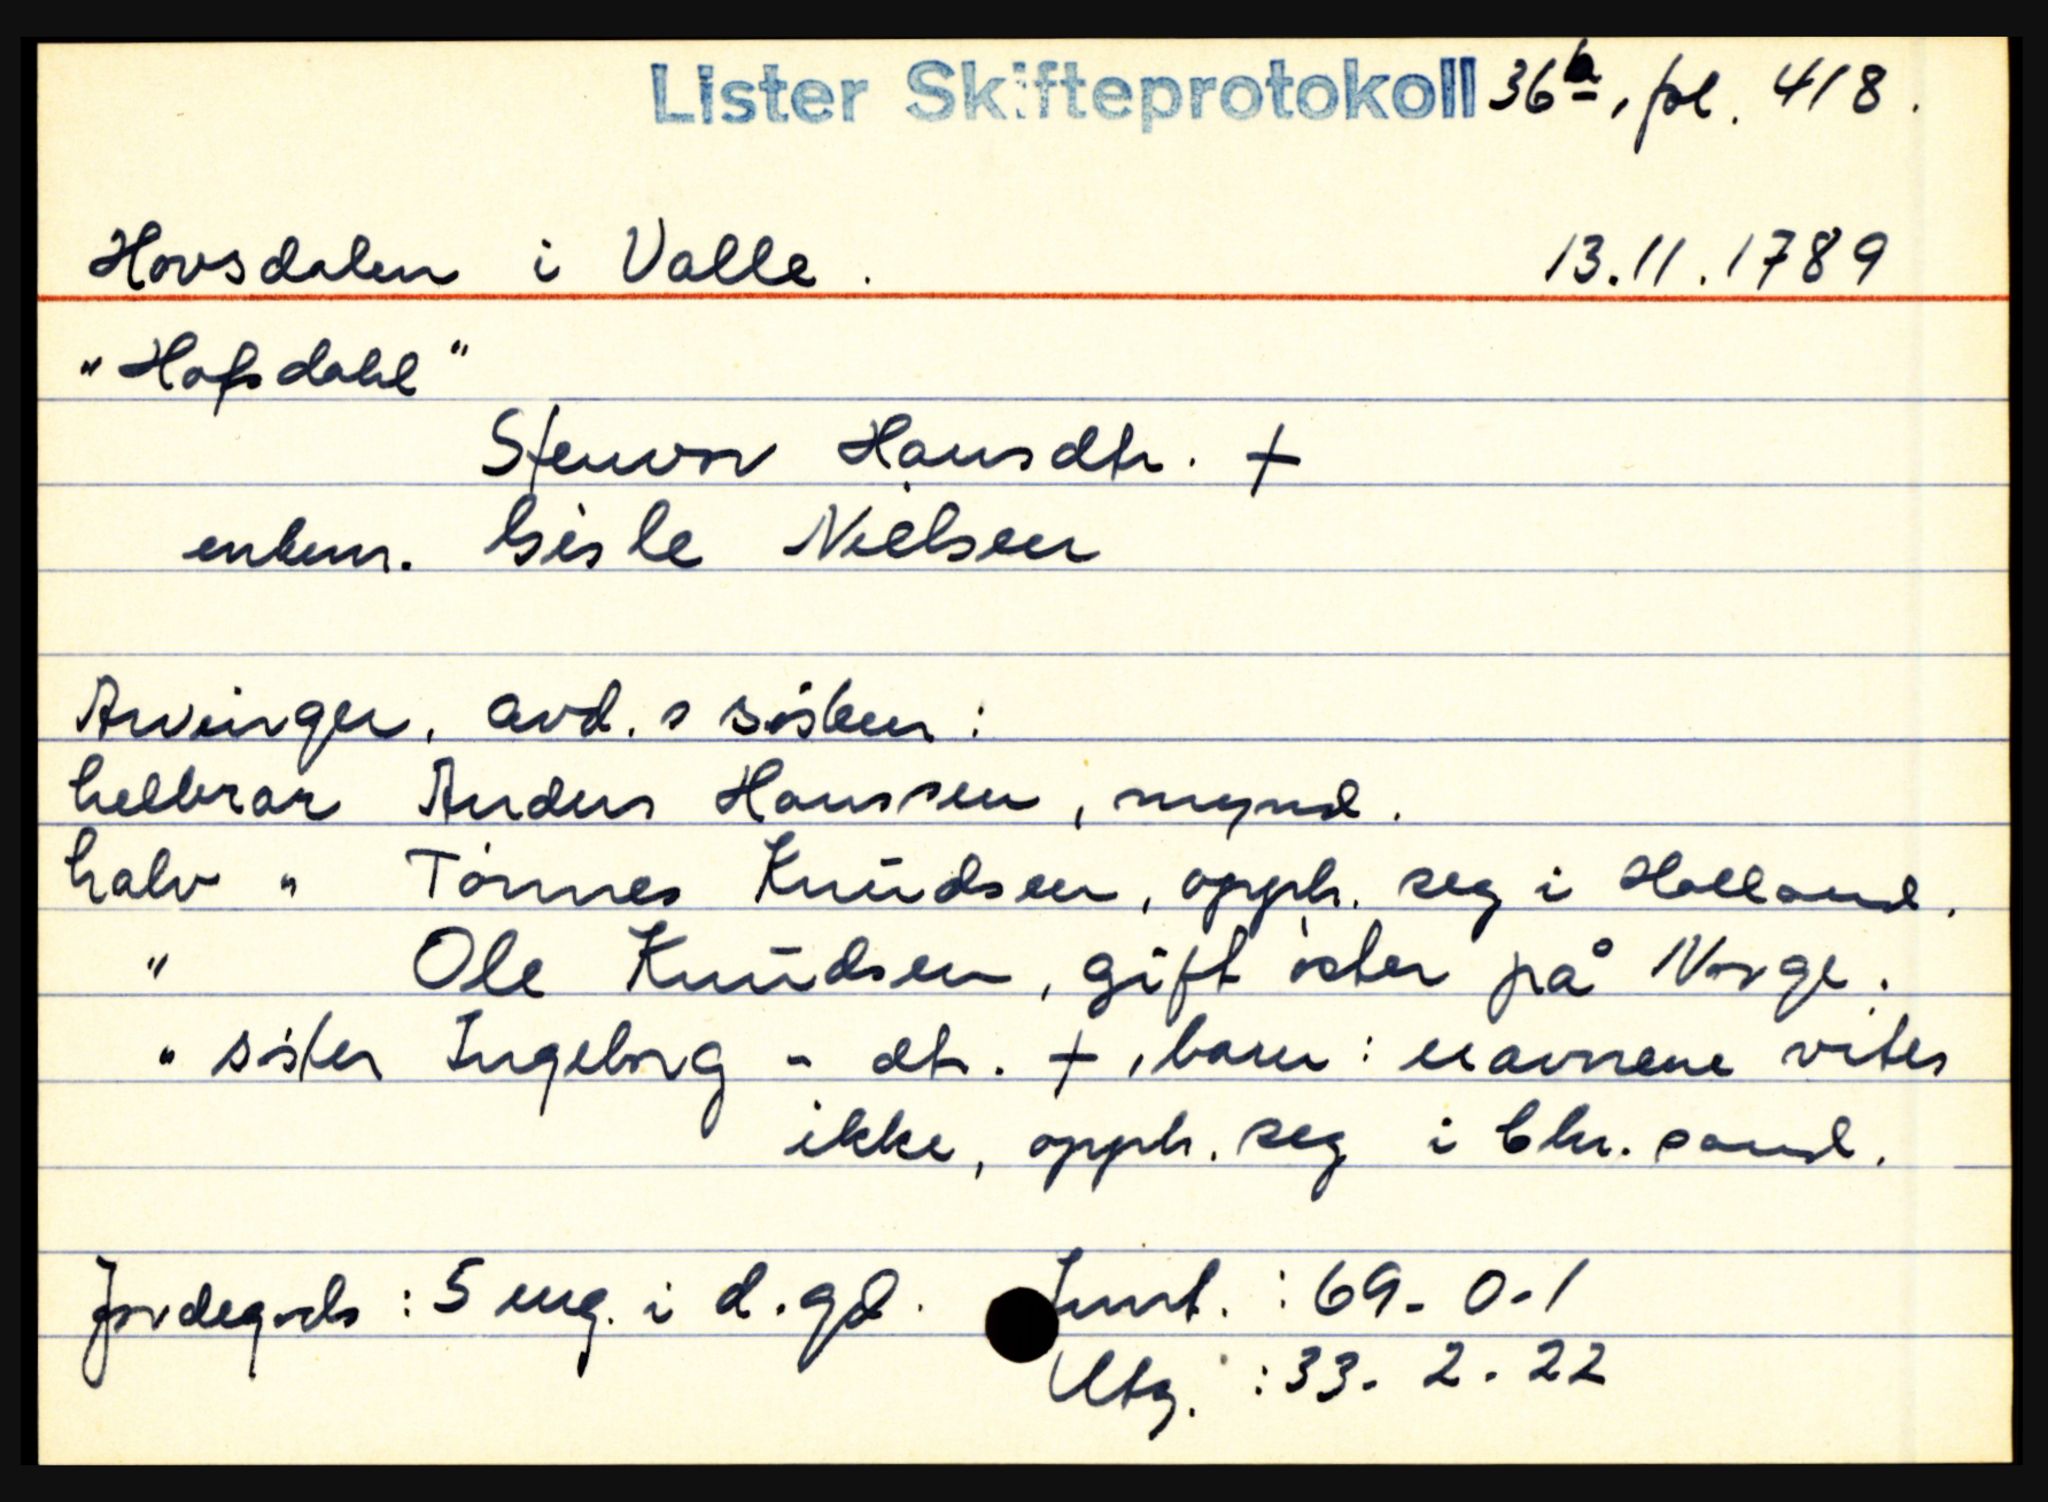 Lister Skifteprotokoll 36b, fol. 418.
Hovsdalen i Valle. 13.11.1789
"Hofsdahl"
Stenvor Hansdtr. +
enkem. Gisle Nielsen
Arvinger, avd.s sösken:
helbror Anders Hanssen, mynd.
halv " Tönnes Knŭdsen, opph. seg i Holland.
" Ole Knŭdsen, gift öster på Norge.
" söster Ingeborg - dtr. +, barn: navnene vites
ikke, opph. seg i Chr.sand.
Jordegods: 5 eng. i d. gd. Innt.: 69-0-1
Utg.: 33-2-22